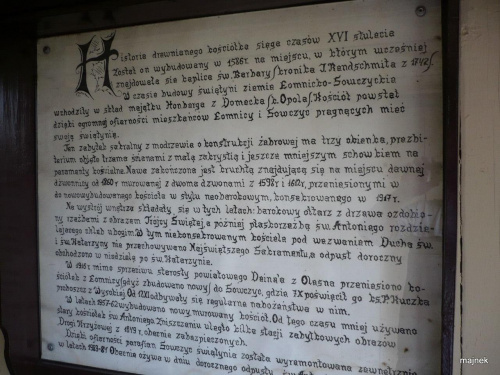 Historia drewnianego kościółka sięga czasów XVI stulecia
Został on wybudowany w 1576r. na miejscu, w którym wcześniej
znajdowała się kaplica św. Barbary /: kronika J. Rendschmita z
W czasie budowy świątyni ziemie Łomnicko-Sowczyckie
wchodziły w skład majątku Honberga z Domecka /: Opola/. Kościół powstał
dzięki ogromnej ofiarności mieszkańców Łomnicy i Sowczyc pragnących mieć
swoją świątynię.
Ten zabytek sakralny z modrzewia o konstrukcji żabrowej ma trzy okienka, prezbi-
terium objęte trzema ścienami z małą zakrystią i jeszcze mniejszym schowkiem na
paramenty kościelne. Nawa zakończona jest kruchtą znajdującą się na miejscu dawnej
dzwonnicy od 1860r murowanej z dwoma dzwonami z 1598r i 1602r, przeniesionymi w
do nowowybudowanego kościoła w stylu neobarokowym, konsekrowanego w 1917r.
Na wystrój wnętrza składały się w tych latach: barokowy ołtarz z drzewa ozdobio-
ny rzeźbami z obrazem Trójcy Świętej, a później płaskorzeźbą św. Antoniego rozdzie-
lającego chleb ubogim. W tym niekonsekrowanym kościele pod wezwaniem Ducha św.
i św. Katarzyny nie przechowywano Najświętszego Sakramentu, a odpust doroczny
obchodzono w niedzielę po św. Katarzynie.
W mimo sprzeciwu starosty powiatowego z Olesna przeniesiono ko-
ściółek z Łomnicy, gdyż zbudowano nowy do Sowczyc, gdzie poświęcił go ks. P. Kuczka
proboszcz z Wysokiej. Od odbywały się regularne nabożeństwa w nim.
W latach wybudowano nowy, murowany kościół. Od tego czasu mniej używano
stary kościółek św. Antoniego. Zniszczeniu uległo kilka stacji zabytkowych obrazów
Drogi Krzyżowej z 1849r, obecnie zabezpieczonych.
Dzięki ofiarności parafian Sowczyc świątynia została wyremontowana zewnętrznie
w latach Obecnie ożywa w dniu dorocznego odpustu
majnek